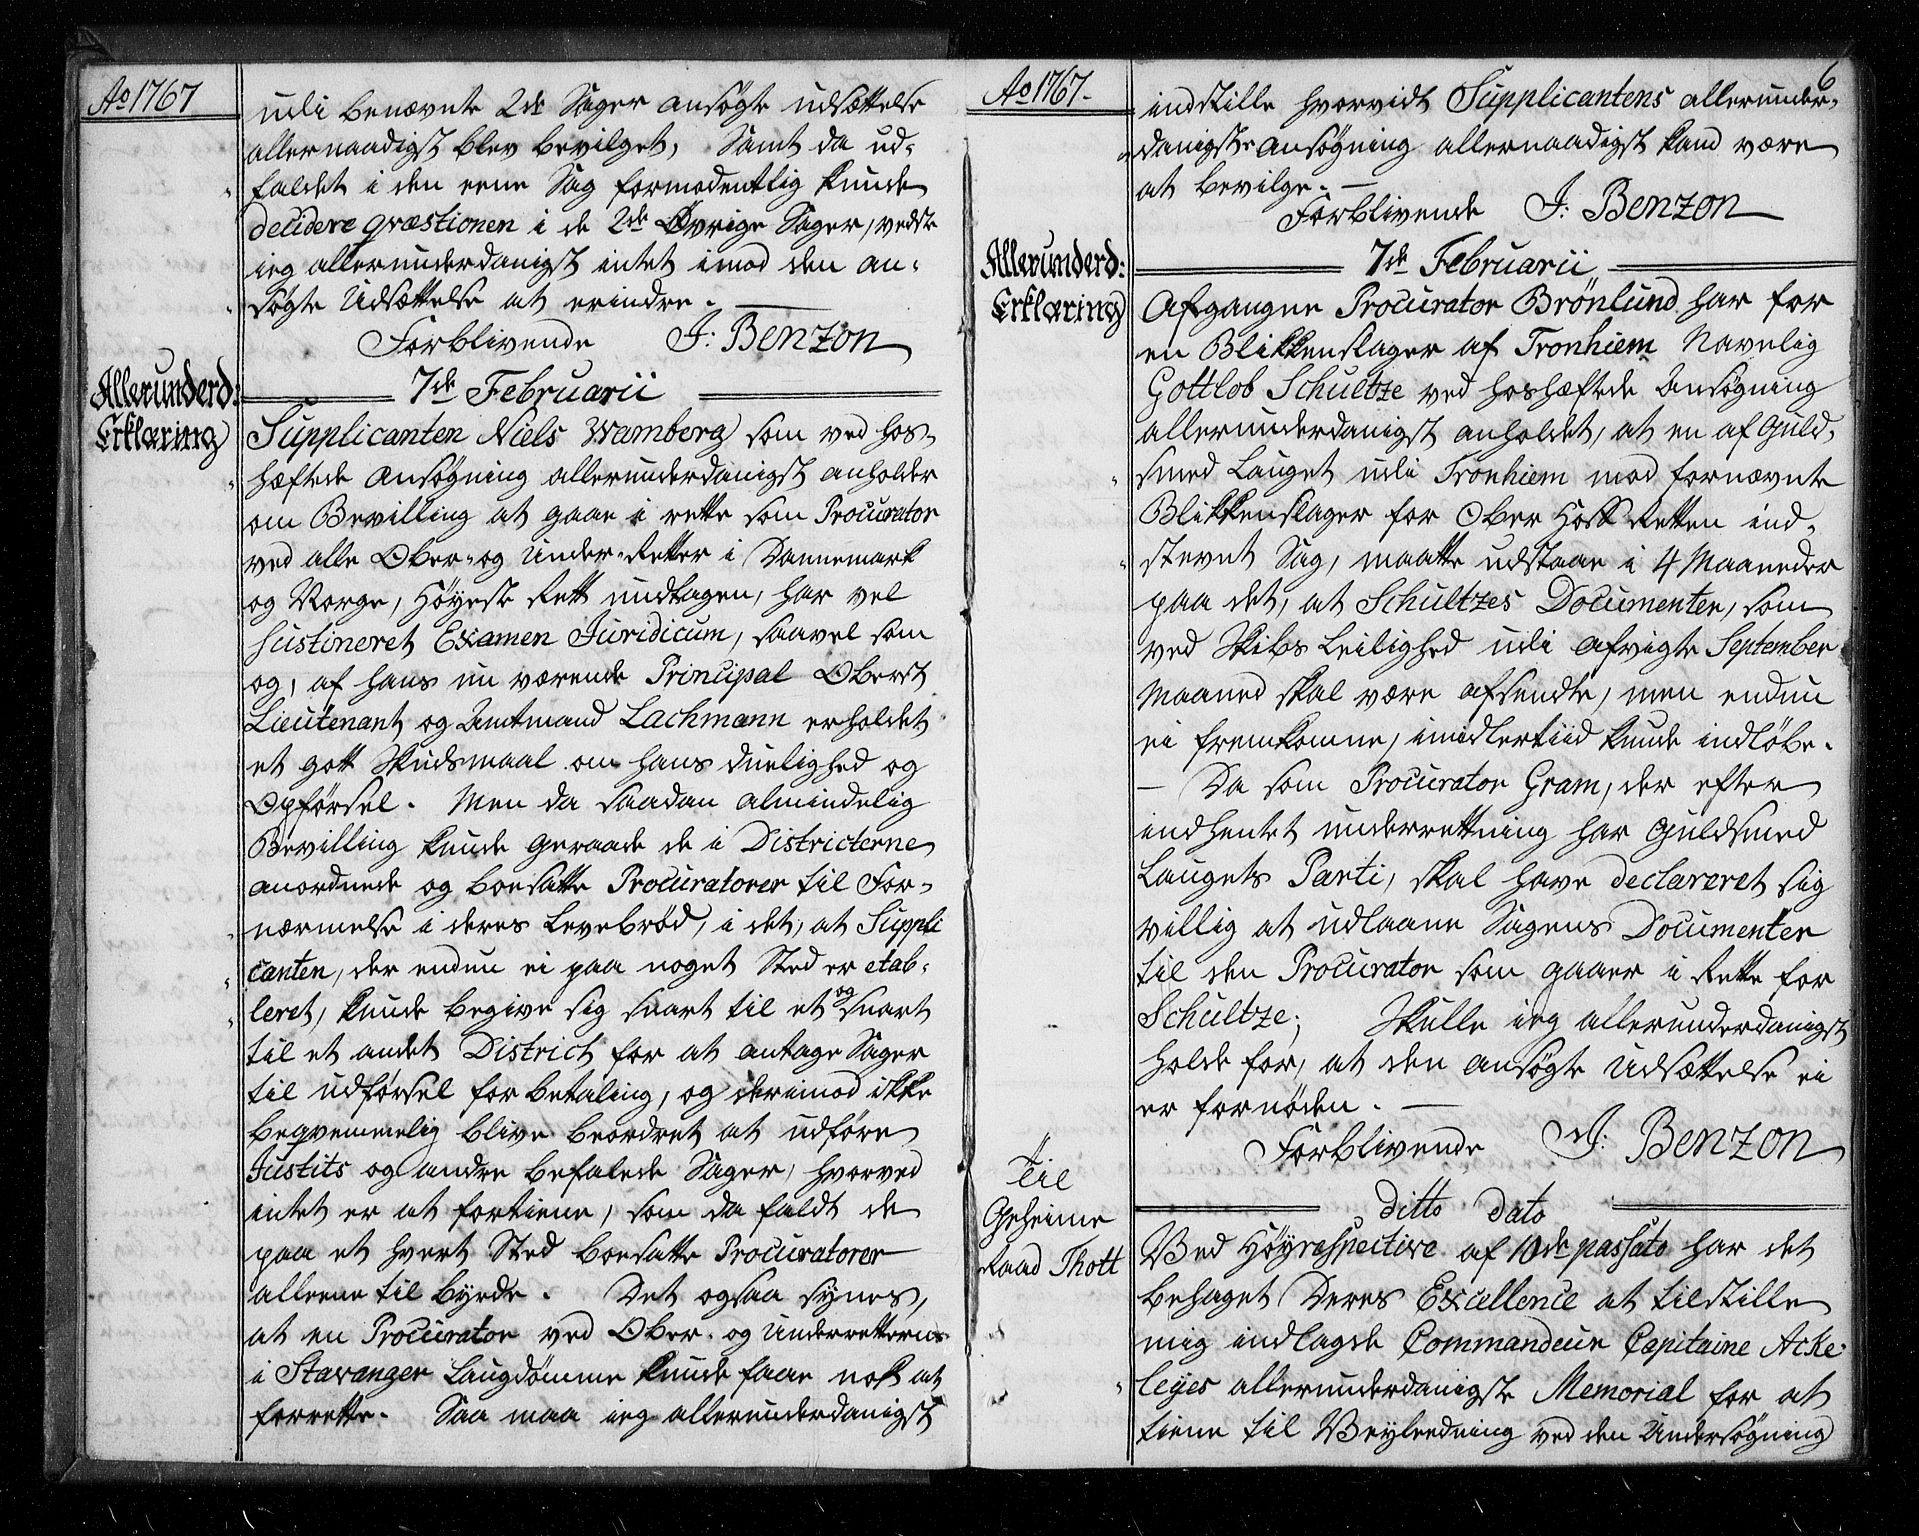 Ao 1767
udi benævnte 2de Sager ansøgte udsættelse
allernaadigst blev bevilget, Samt da ud-
faldet i den eene Sag formodentlig kunde
decidere qvæstionen i de 2de Øvrige Sager, veds
ieg allerunderdanigst intet imod den an-
søgte Udsættelse at erindre.
Forblivende J: Benzon
7de Februarii
Allerunderd:
Erklæring
Supplicanten Niels Wamberg som ved hos-
hæftede Ansøgning allerunderdanigst anholder
om Bevilling at gaae i rette som Procurator
ved alle Ober- og Under-Retter i Dannemark
og Norge, Høyeste Rett undtagen, har vel
sustineret Examen Juridicum, saavel som
og, af hans nu værende Principal Oberst
Lieutenant og Amtmand Lachmann erholdet
et gott Skudsmaal om hans duelighed og
Opførsel. Men da saadan almindelig
Bevilling kunde geraade de i Districterne
anordnede og boesatte Procuratorer til For-
nærmelse i deres Levebrød, i det, at Suppli
canten, der endnu ei paa noget Sted er etab-
leret, kunde begive sig snart til et og snart
til et andet District for at antage Sager
til udførsel for betaling, og derimod ikke
beqvemmelig blive beordret at udføre
Justits og andre befalede Sager, hvorved
intet er at fortiene, som da faldt de
paa et hvert Sted boesatte Procuratorer
alleene til Byrde. Det ogsaa synes,
at en Procurator ved Ober- og Underretterne
i Stavanger Laugdømme kunde faae nok at
forrette. Saa maa ieg allerunderdanigst
Ao 1767.
6
indstille hvorvidt Supplicantens allerunder-
danigste ansøgning allernaadigst kand være
at bevilge.
Forblivende J: Benzon
7de Februarii
Allerunderd:
Erklæring
Afgangne Procurator Brönlund har for
en Blikkenslager af Tronhiem Navnlig
Gottlob Schultze ved hoshæftede Ansøgning
allerunderdanigst anholdet, at en af Guld-
smed Lauget udi Tronhiem mod fornævnte
Blikkenslager for Ober Hoff Retten ind-
stevnt Sag, maatte udstaae i 4 Maaneder
paa det, at Schultzes Documenter, som
ved Skibs Leilighed udi afvigte September
Maaned skal være afsendte, men endnu
ei fremkomne, imidlertiid kunde indløbe.
Da som Procurator Gram, der efter
indhentet underrettning har Guldsmed
Laugets Parti, skal have declareret sig
villig at udlaane Sagens Documenter
til den Procurator som gaaer i Rette for
Schultze; Skulle ieg allerunderdanigst
holde for, at den ansøgte Udsættelse ei
er fornøden.
Forblivende J: Benzon
ditto dato
Til
Geheime
Raad Thott
Ved Høyrespective af 10de passato har det
behaget Deres Excellence at tilstille
mig indlagde Commandeur Capitaine Acke-
leyes allerunderdanigste Memorial for at
tiene til Veyledning ved den Undersøgning